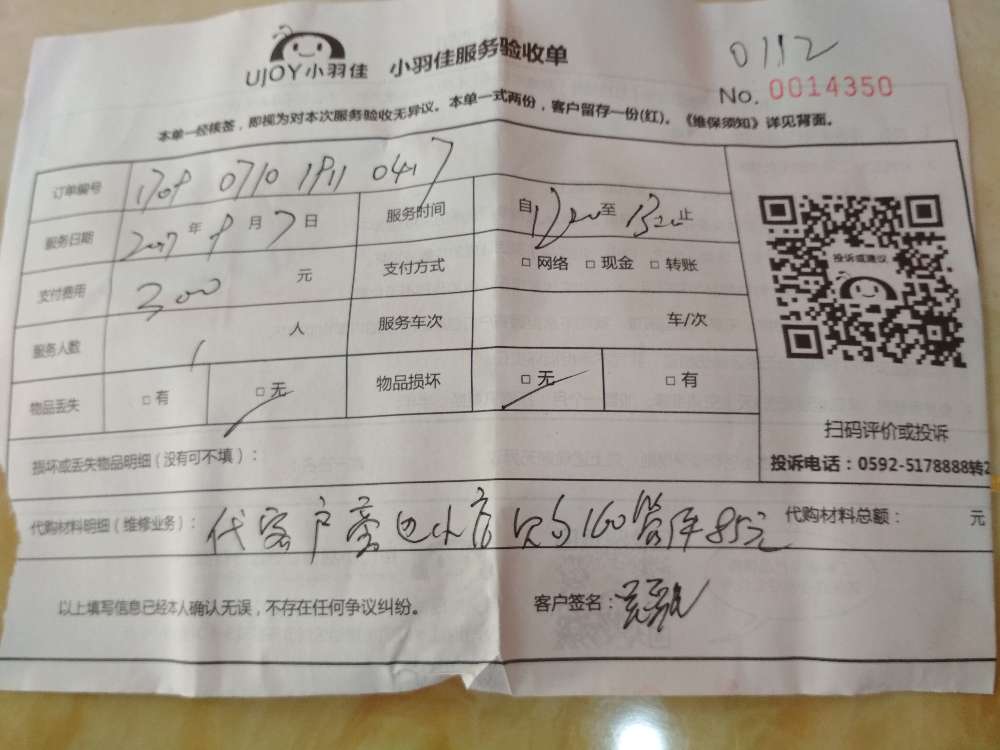 UJOY小羽佳 小羽佳服务验收单
0112
No. 0014350
本单一经核签，即视为对本次服务验收无异议。本单一式两份，客户留存一份(红)。《维保须知》详见背面。
订单编号 1709 0710 1911 0417
服务日期 2017年9月7日 服务时间 自1200至1320止
支付费用 300元 支付方式 □网络 □现金 □转账
服务人数 1人 服务车次 车/次
物品丢失 □有 □无 物品损坏 □无 □有
投诉或建议
扫码评价或投诉
投诉电话：0592-5178888转2
损坏或丢失物品明细（没有可不填）：
代购材料明细（维修业务）：代客户 160管件85元 代购材料总额： 元
以上填写信息已经本人确认无误，不存在任何争议纠纷。 客户签名：